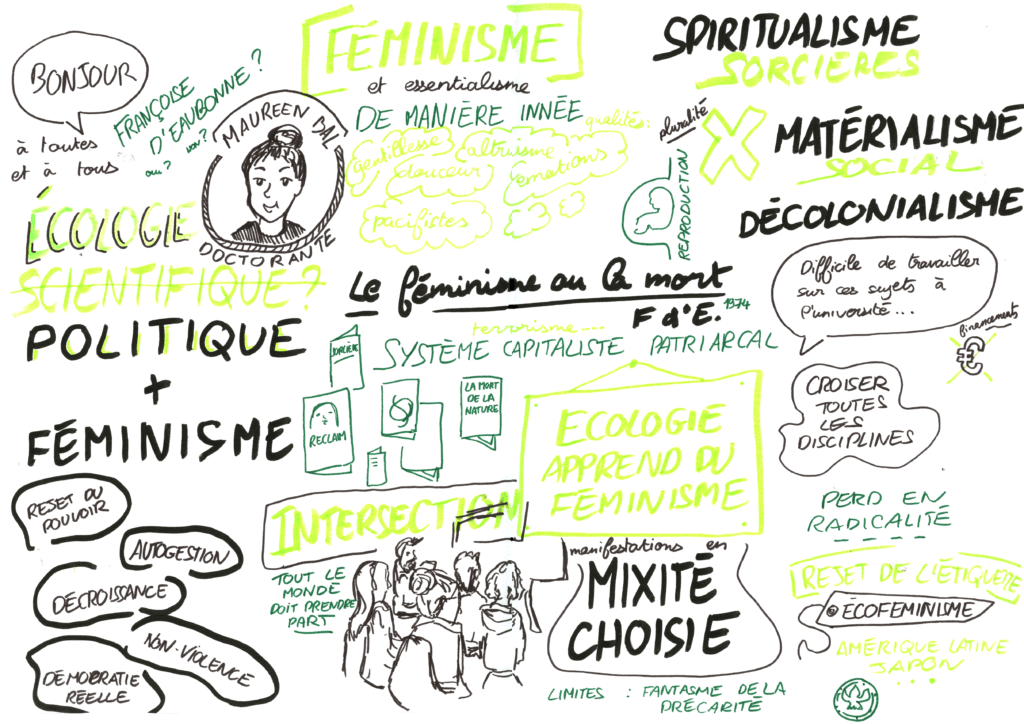 BONJOUR
à toutes
et à tous
FRANÇOISE
D'EAUBONNE ?
oui ?
non ?
MAUREEN BAL
DOCTORANTE
ÉCOLOGIE
SCIENTIFIQUE ?
POLITIQUE
+
FÉMINISME
REJET DU
POUVOIR
AUTOGESTION
DÉCROISSANCE
NON-VIOLENCE
DÉMOCRATIE
RÉELLE
FÉMINISME
et essentialisme
DE MANIÈRE INNÉE
qualités :
gentillesse
altruisme
douceur
émotions
pacifistes
REPRODUCTION
Le féminisme ou la mort
F d'E. 1974
terrorisme...
SYSTÈME CAPITALISTE PATRIARCAL
SORCIÈRE
RECLAIM
LA MORT
DE LA
NATURE
ECOLOGIE
APPREND DU
FÉMINISME
INTERSECTION
TOUT LE
MONDE
DOIT PRENDRE
PART
manifestations en
MIXITÉ
CHOISIE
LIMITES : FANTASME DE LA
PRÉCARITÉ
SPIRITUALISME
SORCIÈRES
pluralité
X
MATÉRIALISME
SOCIAL
DÉCOLONIALISME
Difficile de travailler
sur ces sujets à
l'université...
financements
€
CROISER
TOUTES
LES
DISCIPLINES
PERD EN
RADICALITÉ
REJET DE L'ÉTIQUETTE
ÉCOFEMINISME
AMÉRIQUE LATINE
JAPON
...